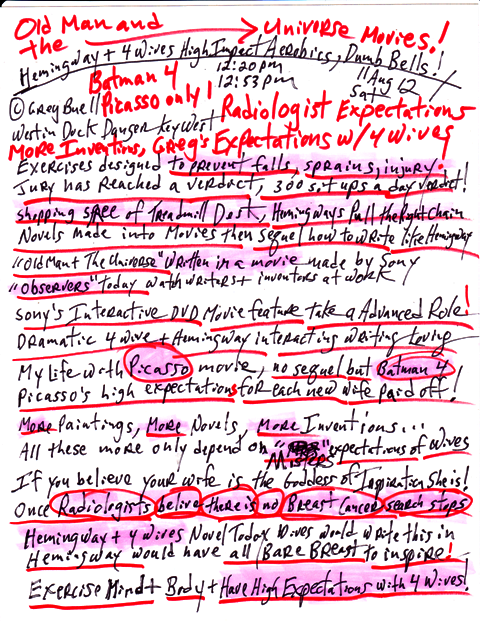 Old Man and
the → Universe Movies!
Hemingway + 4 Wives High Impact Aerobics, Dumb Bells!
Batman 4 12:20 pm 11 Aug 12
Picasso only! 12:53 pm Sat
© Greg Buell Radiologist Expectations
Westin Dock Danger Key West
More Inventions, Greg's Expectations w/ 4 Wives
Exercises designed to prevent falls, sprains, injury.
Jury has Reached a verdict, 300 sit ups a day verdict!
Shopping spree of Treadmill Desk, Hemingways Pull the Right Chain
Novels made into Movies then sequel how to write like Hemingway
"Old Man + The Universe" written in a movie made by Sony
"Observers" today watch writers + inventors at work
Sony's Interactive DVD Movie feature take a Advanced Role!
Dramatic 4 wive + Hemingway interacting writing Loving
My Life with Picasso movie, no sequel but Batman 4
Picasso's high expectations for each new wife paid off!
More Paintings, More Novels, more Inventions...
All these more only depend on " " expectations of wives
Misters
If you believe your wife is the Goddess of Inspiration She is!
Once Radiologists belive there is no Breast Cancer search stops
Hemingway + 4 wives Novel Today Wives would write this in
Hemingway would have all Bare Breast to inspire!
Exercise Mind + Body + Have High Expectations with 4 Wives!